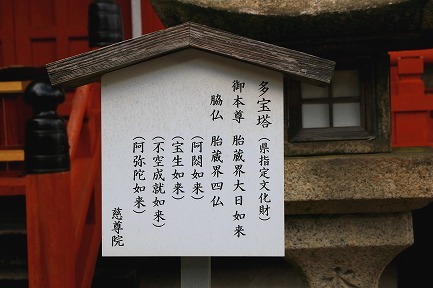 多宝塔（県指定文化財）
御本尊 胎蔵界大日如来
脇仏 胎蔵界四仏
（阿閦如来）
（宝生如来）
（不空成就如来）
（阿弥陀如来）
慈尊院